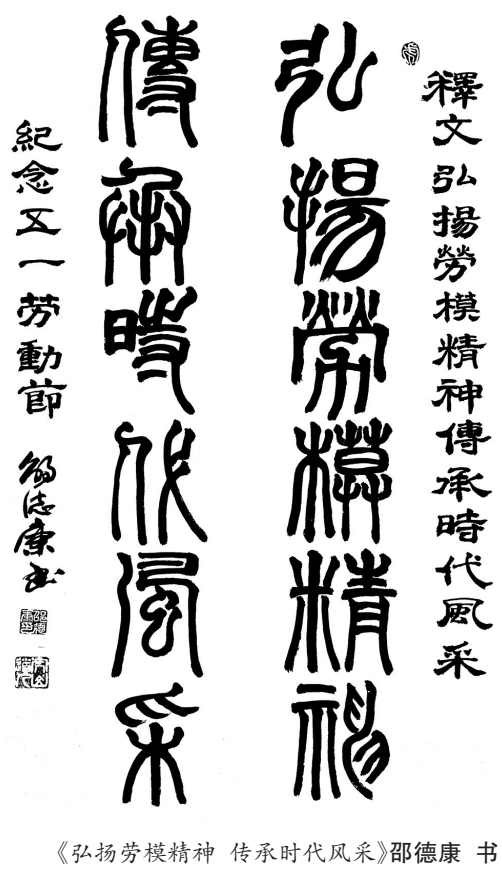 釋文弘揚勞模精神傳承時代風采
弘揚勞模精神
傳承時代風采
紀念五一劳動節 邵德康书
《弘扬劳模精神 传承时代风采》邵德康 书